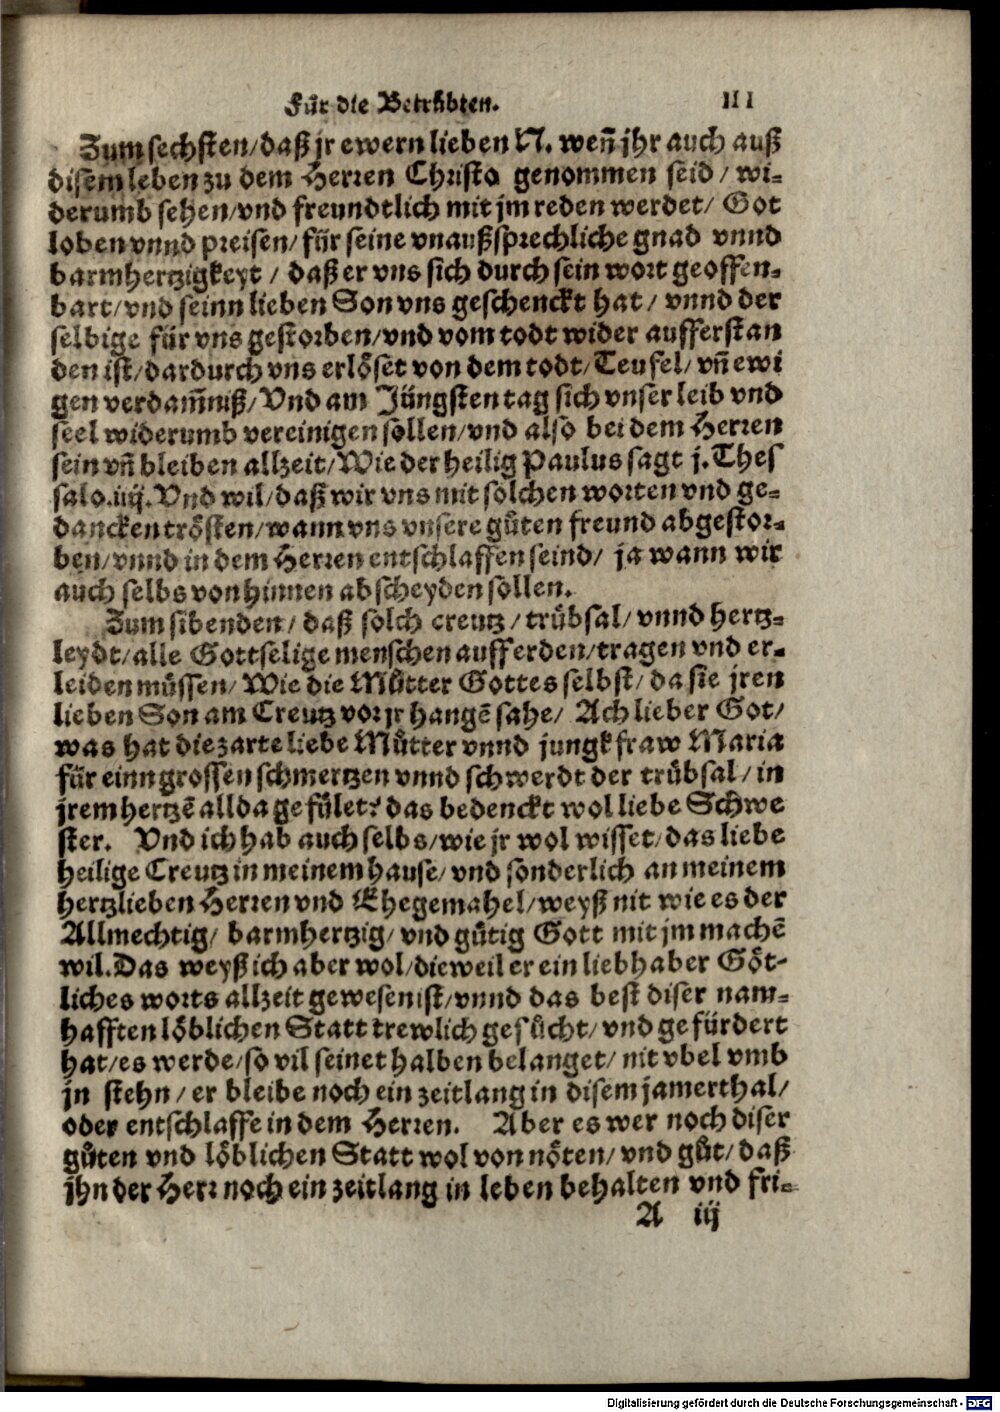 Für die Betrübten. III
Zum sechsten/daß jr ewern lieben N. weñ jhr auch auß
disem leben zu dem Herren Christo genommen seid/ wi-
derumb sehen/vnd freundtlich mit jm reden werdet/ Got
loben vnnd preisen/ für seine vnaußsprechliche gnad vnnd
barmhertzigkeyt / daß er vns sich durch sein wort geoffen-
bart/vnd seinn lieben Son vns geschenckt hat/ vnnd der
selbige für vns gestorben/vnd vom todt wider aufferstan
den ist/dardurch vns erlöset von dem todt/Teufel/ vñ ewi
gen verdam̃niß/Vnd am Jüngsten tag sich vnser leib vnd
seel widerumb vereinigen sollen/vnd also bei dem Herren
sein vñ bleiben allzeit/Wie der heilig Paulus sagt j.Thes
salo.iiij.Vnd wil/daß wir vns mit solchen worten vnd ge-
dancken trösten/wann vns vnsere gůten freund abgestor-
ben/vnnd in dem Herren entschlaffen seind/ ja wann wir
auch selbs von hinnen abscheyden sollen.
Zum sibenden/ daß solch creutz/trübsal/vnnd hertz-
leydt/alle Gottselige menschen auff erden/tragen vnd er-
leiden müssen/Wie die Můtter Gottes selbst/da sie jren
lieben Son am Creutz vor jr hangē sahe/ Ach lieber Got/
was hat die zarte liebe Můtter vnnd jungkfraw Maria
für einn grossen schmertzen vnnd schwerdt der trübsal/in
jrem hertzē allda gefület? das bedenckt wol liebe Schwe
ster. Vnd ich hab auch selbs/wie jr wol wisset/das liebe
heilige Creutz in meinem hause/vnd sonderlich an meinem
hertzlieben Herren vnd Ehegemahel/weyß nit wie es der
Allmechtig/ barmhertzig/ vnd gütig Gott mit jm machē
wil.Das weyß ich aber wol/dieweil er ein liebhaber Göt-
liches worts allzeit gewesen ist/vnnd das best diser nam-
hafften löblichen Statt trewlich gesůcht/vnd gefürdert
hat/es werde/so vil seinet halben belanget/nit vbel vmb
jn stehn/er bleibe noch ein zeitlang in disem jamerthal/
oder entschlaffe in dem Herren. Aber es wer noch diser
gůten vnd löblichen Statt wol von nöten/vnd gůt/daß
jhn der Herr noch ein zeitlang in leben behalten vnd fri-
A iij
Digitalisierung gefördert durch die Deutsche Forschungsgemeinschaft - DFG